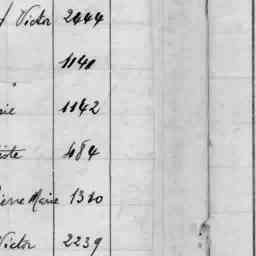 Victor 2444
1141
1142
484
Pierre Marie 1310
Victor 2239